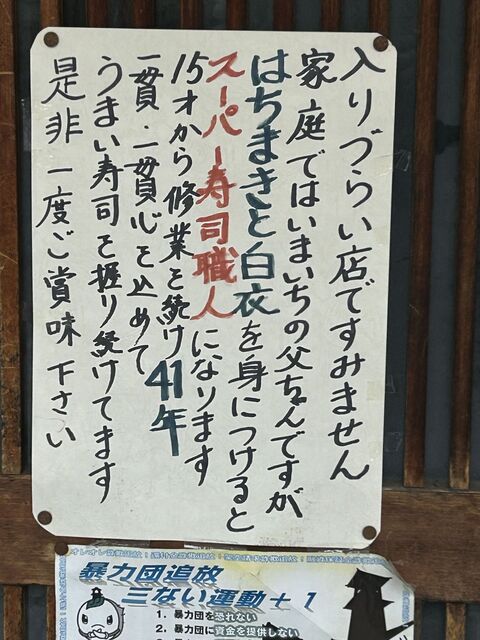 入りづらい店ですみません
家庭ではいまいちの父ちゃんですが
はちまきと白衣を身につけると
スーパー寿司職人になります
15才から修業を続け41年
一貫一貫心を込めて
うまい寿司を握り続けてます
是非一度ご賞味下さい
暴力団追放
三ない運動+1
1. 暴力団を恐れない
2. 暴力団に資金を提供しない